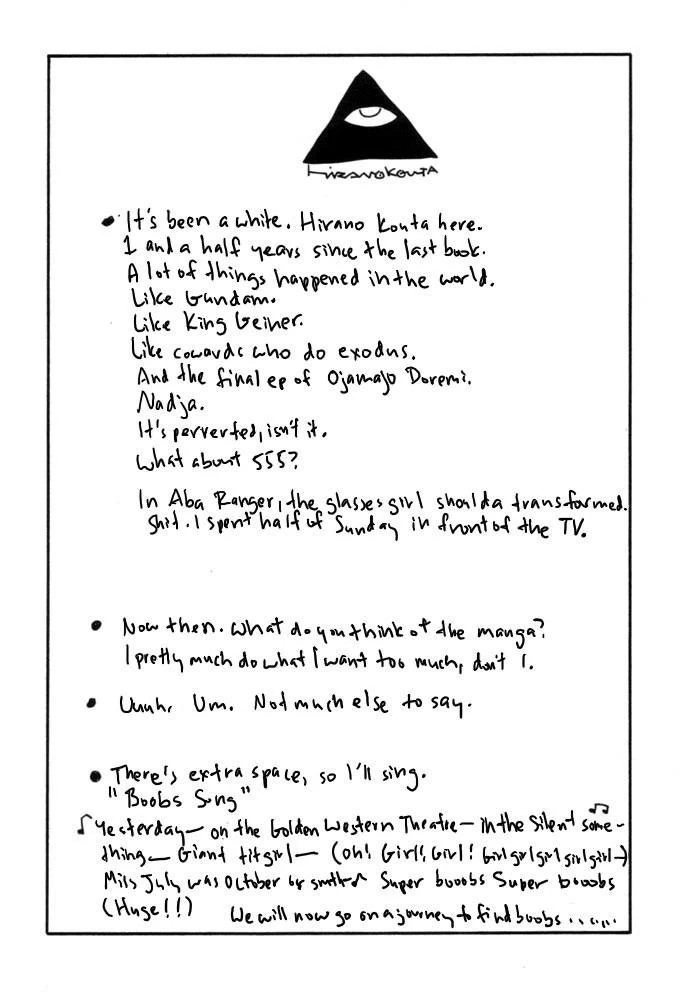 HIRANOKOUTA
• It's been a while. Hirano Kouta here.
1 and a half years since the last book.
A lot of things happened in the world.
Like Gundam.
Like King Geiner.
Like cowards who do exodus.
And the final ep of Ojamajo Doremi.
Nadja.
It's perverted, isn't it.
What about 555?
In Aba Ranger, the glasses girl shoulda transformed.
Shit. I spent half of Sunday in front of the TV.
• Now then. What do you think of the manga?
I pretty much do what I want too much, don't I.
• Uuuh. Um. Not much else to say.
• There's extra space, so I'll sing.
"Boobs Song"
♪ Yesterday— on the Golden Western Theatre— in the Silent some-
thing— Giant tit girl— (oh! Girl! Girl! Girl girl girl girl girl—)
July was October Super buoobs Super booobs
(Huge!!) We will now go on a journey to find boobs.......